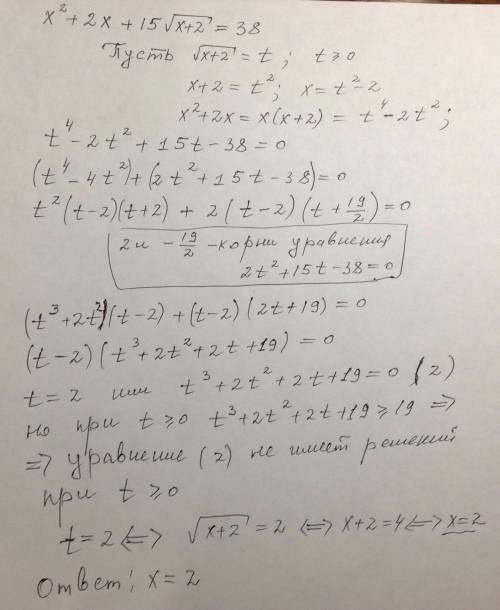 x² + 2x + 15√(x+2) = 38
Пусть √(x+2) = t ; t ≥ 0
x+2 = t² ; x = t² - 2
x² + 2x = x(x+2) = t⁴ - 2t² ;
t⁴ - 2t² + 15t - 38 = 0
(t⁴ - 4t²) + (2t² + 15t - 38) = 0
t²(t-2)(t+2) + 2(t-2)(t + 19/2) = 0
2 и - 19/2 - корни уравнения
2t² + 15t - 38 = 0
(t³ + 2t²)(t-2) + (t-2)(2t+19) = 0
(t-2)(t³ + 2t² + 2t + 19) = 0
t = 2 или t³ + 2t² + 2t + 19 = 0 (2)
но при t ≥ 0 t³ + 2t² + 2t + 19 ≥ 19 ⇒
⇒ уравнение (2) не имеет решений
при t ≥ 0
t = 2 ⇔ √(x+2) = 2 ⇔ x+2 = 4 ⇔ x = 2
Ответ: x = 2